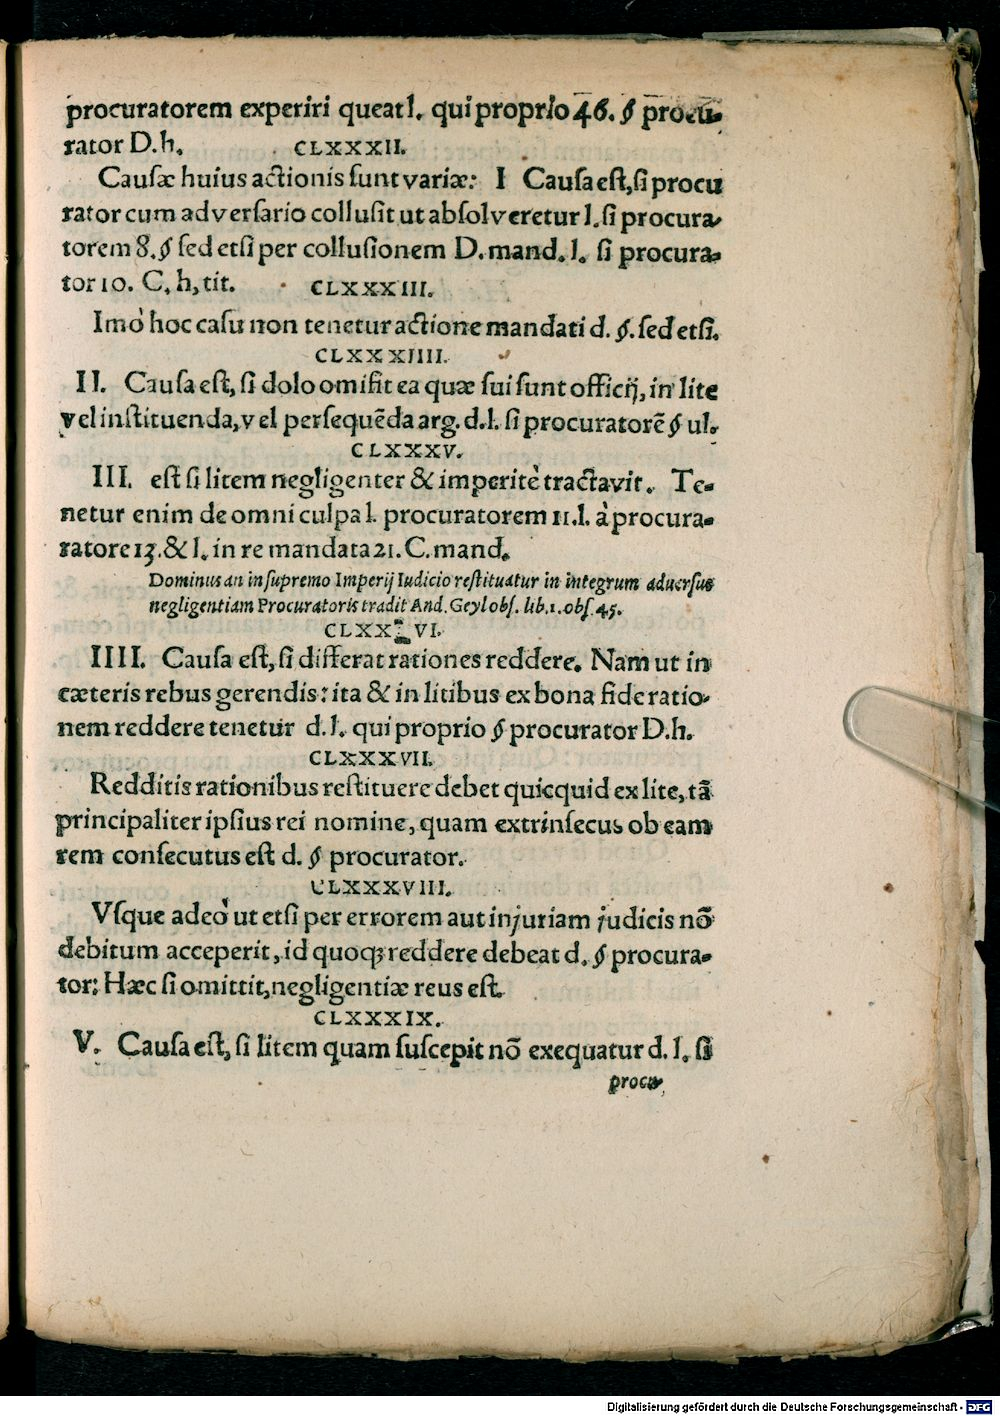 procuratorem experiri queat l. qui proprio 46. § procu-
rator D. h. CLXXXII.
Causæ huius actionis sunt variæ: I Causa est, si procu
rator cum adversario collusit ut absolveretur l. si procura-
torem 8. § sed etsi per collusionem D. mand. l. si procura-
tor 10. C. h, tit. CLXXXIII.
Imò hoc casu non tenetur actione mandati d. §. sed etsi.
CLXXXIIII.
II. Causa est, si dolo omisit ea quæ sui sunt officij, in lite
vel instituenda, vel persequẽda arg. d. l. si procuratorẽ § ul.
CLXXXV.
III. est si litem negligenter & imperitè tractavit. Te-
netur enim de omni culpa l. procuratorem 11. l. à procura-
ratore 13. & l. in re mandata 21. C. mand.
Dominus an in supremo Imperij Iudicio restituatur in integrum adversus
negligentiam Procuratoris tradit And. Geyl obs. lib. 1. obs. 45.
CLXXXVI.
IIII. Causa est, si differat rationes reddere. Nam ut in
cæteris rebus gerendis: ita & in litibus ex bona fide ratio-
nem reddere tenetur d. l. qui proprio § procurator D. h.
CLXXXVII.
Redditis rationibus restituere debet quicquid ex lite, tã
principaliter ipsius rei nomine, quam extrinsecus ob eam
rem consecutus est d. § procurator.
CLXXXVIII.
Vsque adeò ut etsi per errorem aut injuriam judicis nõ
debitum acceperit, id quoq; reddere debeat d. § procura-
tor: Hæc si omittit, negligentiæ reus est.
CLXXXIX.
V. Causa est, si litem quam suscepit nõ exequatur d. l. si
procu-
Digitalisierung gefördert durch die Deutsche Forschungsgemeinschaft - DFG